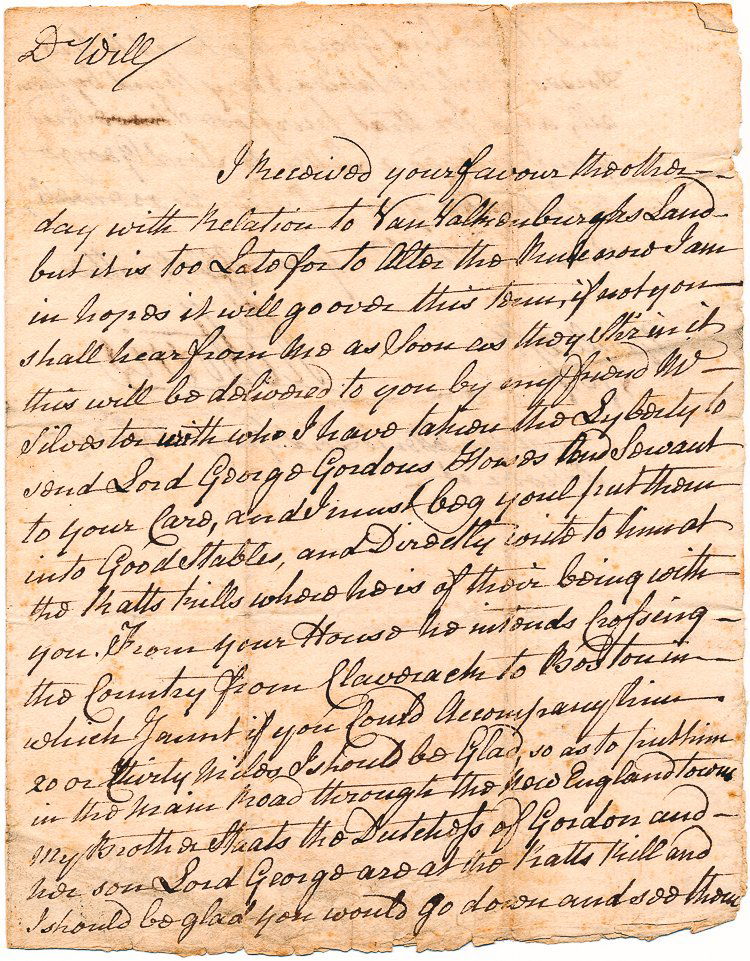 Dr Will
I Received your favour the other
day with Relation to Van Valkenburghs Land
but it is too Late for to Alter the Rule now I am
in hopes it will go over this term, if not you
shall hear from me as Soon as they Stir in it
this will be delivered to you by my friend Mr
Silvester with who I have taken the Lyberty to
send Lord George Gordons Horses And Servant
to your Care, and I must beg youl put them
into Good Stables, and Directly write to him at
the Katts Kills where he is of their being with
you. From your House he intends Crossing
the Country from Claverack to Boston in
which Jaunt if you Could Accompany him
20 or Thirty Miles I should be Glad, so as to put him
in the Main Road through the New England towns
My Brother Staats the Dutchess of Gordon and
her son Lord George are at the Katts Kill and
I should be glad you would go down and see them